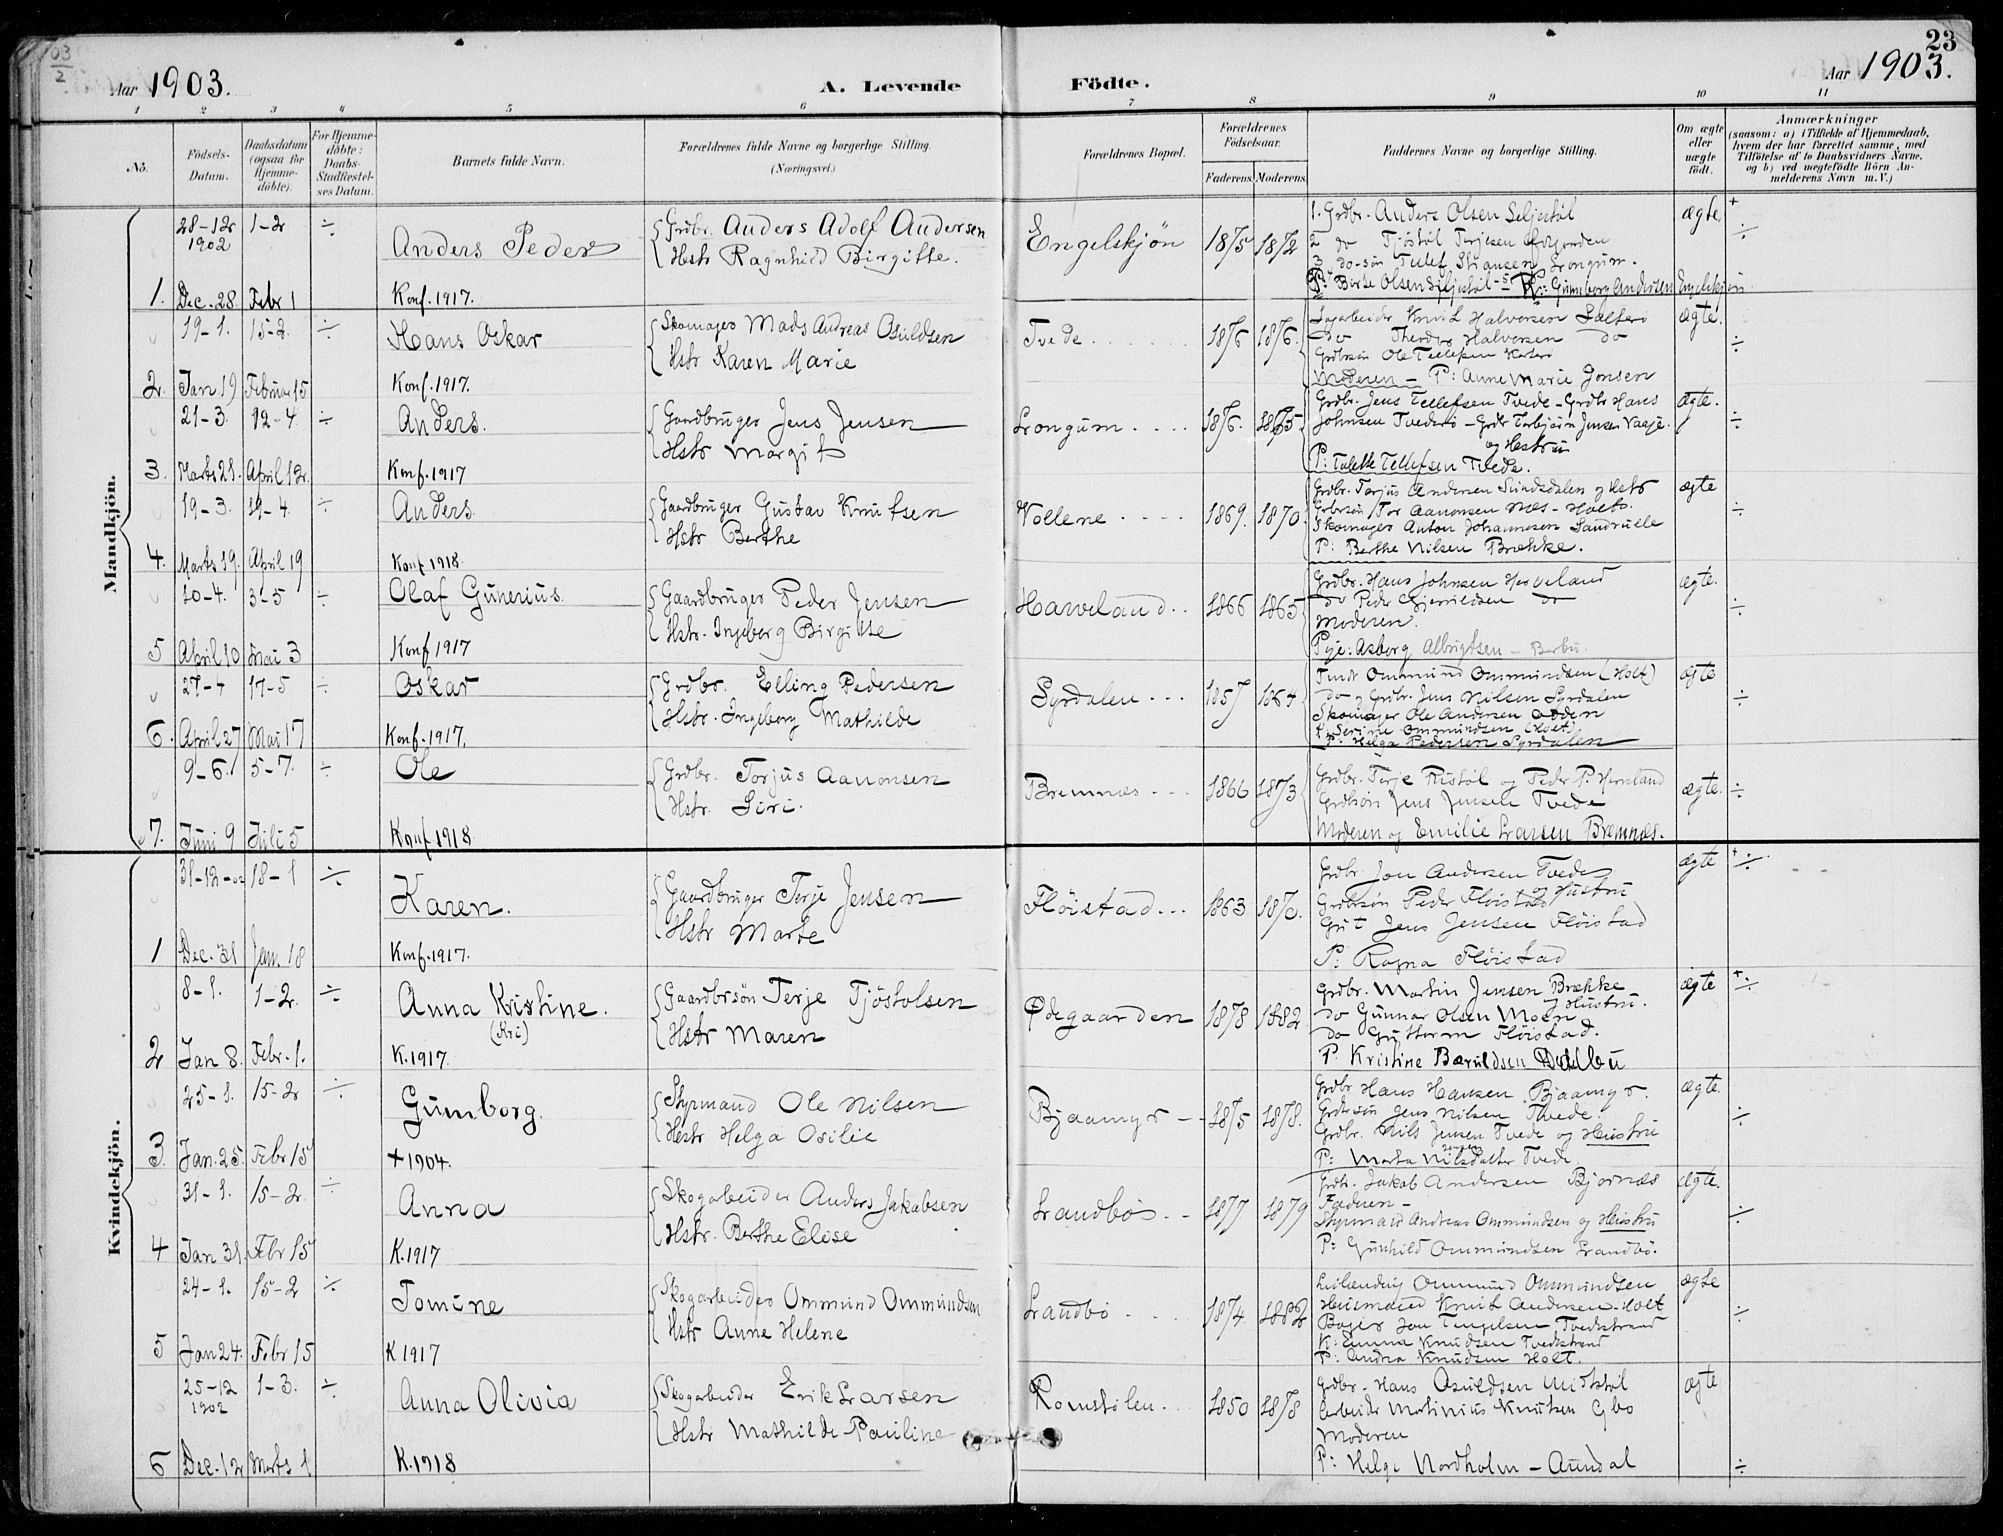 03
2
23
Aar 1903.
A. Levende
Födte.
Aar 1903.
1 2 3 4 5 6 7 8 9 10 11
No.
Födsels-
Datum.
Daabsdatum
(ogsaa for
Hjemme-
döbte).
For Hjemme-
döbte:
Daabs-
Stadfæstel-
ses Datum.
Barnets fulde Navn.
Forældrenes fulde Navne og borgerlige Stilling.
(Næringsvei.)
Forældrenes Bopæl.
Forældrenes
Födselsaar.
Faderens. Moderens.
Faddernes Navne og borgerlige Stilling.
Om ægte
eller
uægte
født.
Anmærkninger
(saasom: a) i Tilfælde af Hjemmedaab,
hvem der har forrettet samme, med
Tilföielse af to Daabsvidners Navne,
og b) ved uægtefödte Börn An-
melderens Navn m. V.)
Mandkjön.
28-12 1-2 ÷
1902
Anders Peder
Grdbr. Anders Adolf Andersen
Hstr Ragnhild Birgitte.
Engelskjøn 1875 1872
1. Grdbr. Anders Olsen Seljestøl
2 do Tjøstøl Terjesen
3 do-søn Tellef Longum.
P: Børte Olsen Seljestøl - K: Gumborg Andersen Engelskjøn
ægte + ÷
1. Dec. 28 Febr 1 Konf. 1917.
19-1. 15-2. ÷
Hans Oskar
Skomager Mads Andreas Osuldsen
Hstr Karen Marie
Tvede 1876 1876.
Sagarbeider Knut Halvorsen
do Theodor Halvorsen do
Grdbrsøn Ole Tellefsen
Moderen - P: Anne Marie Jonsen
ægte. ÷
2. Jan 19 Februar 15 Konf. 1917.
21-3. 12-4. ÷
Anders.
Gaardbruger Jens Jensen
Hstr Margit
Longum 1876. 1865
Grdbr. Jens Tellefsen Tvede - Grdbr Hans
Johnsen Tvede - Grdbr Torbjørn Jensen Vaaje.
og Hustru
P: Tellefsen Tvede.
ægte. ÷
3. Marts 21. April 12. Konf. 1917
19-3. 19-4. ÷
Anders.
Gaardbruger Gustav Knutsen
Hstr Berthe
Vollene 1869. 1870
Grdbr. Torjus Andersen Sundsdalen og Hstr
Grdbrsøn Tor Aanonsen Næs - Holt.
Skomager Anton Johannesen
P: Berthe Nilsen Brække.
ægte ÷
4. Marts 19. April 19 Konf 1918
10-4. 3-5 ÷
Olaf Gunerius.
Gaardbruger Peder Jensen
Hstr. Ingeborg Birgitte
Harveland 1866 1865
Grdbr. Hans Johnsen Herveland
do Peder do
Moderen.
Pige: Asborg Albrigtsen - Barbu.
ægte. ÷
5 April 10 Mai 3 Konf 1917
27-4 17-5 ÷
Oskar
Grdbr. Elling Pedersen
Hstr. Ingeborg Mathilde
Syrdalen 1857 1864
Ommund Ommundsen (Holt)
do og Grdbr. Jens Nilsen Syrdalen
Skomager Ole Andersen
K. Serine Ommundsen (Holt)
P: Helga Pedersen Syrdalen
ægte ÷
6. April 27 Mai 17 Konf. 1917.
9-6. 5-7. ÷
Ole
Grdbr. Torjus Aanonsen
Hstr. Siri.
Bremnæs 1866 1873
Grdbr. Terje Ristøl og Peder P. Herveland
Grdbsøn Jens Jensen Tvede
Moderen og Emilie Larsen Bremnæs.
ægte. ÷
7. Juni 9 Juli 5 Konf 1918
Kvindekjön.
31-12-02 18-1 ÷
Karen.
Gaardbruger Terje Jensen
Hstr Marte
Fløistad 1863 1870.
Grdbr Jon Andersen Tvede
Grdbrsøn Peder Fløistad og Hustru
Gut Jens Jensen Fløistad
P: Ragna Fløistad
ægte + ÷
1 Dec. 31 Jan. 18 Konf. 1917.
8-1. 1-2. ÷
Anna Kristine.
(Kri)
Gaardbrsøn Terje Tjøstolsen
Hstr Maren
Ødegaarden 1878 1882
Grdbr. Martin Jensen Brække
do Gunnar Olsen Moen og Hustru.
do Guttorm Fløistad.
P. Kristine Baruldsen Dalbu
ægte + ÷
2 Jan 8. Febr. 1. K. 1917.
25-1. 15-2 ÷
Gumborg.
Styrmand Ole Nilsen
Hstr Helga Osilie
Bjaamyr 1875 1878.
Grdbr Hans Hansen Bjaamyr.
Grdbrsøn Jens Nilsen Tvede.
Grdbr. Nils Jensen Tvede og Hustru
P: Marta Nilsdatter Tvede
ægte. ÷
3. Jan. 25. Febr 15 + 1904.
31-1. 15-2. ÷
Anna
Skogarbeider Anders Jakobsen
Hstr. Berthe Elise
Landbø 1877 1879
Grdbr. Jakob Andersen Bjornæs
Faderen -
Styrmand Andreas Ommundsen og Hustru
P: Gunhild Ommundsen Landbø.
ægte. ÷
4 Jan 31. Febr 15 K. 1917
24-1. 15-2 ÷
Tomine
Skogarbeider Ommund Ommundsen
Hstr Anne Helene
Landbø 1874 1882
Ommund Ommundsen
Knut Andersen Holt
Bager Jon Tvedestrand
K: Emma Knudsen Tvedestrand
P: Andrea Knudsen Holt.
ægte ÷
5 Jan 24. Febr 15 K 1917
25-12 1-3. ÷
1902
Anna Olivia
Skogarbeider Erik Larsen
Hstr Mathilde Pauline
Romstølen 1850 1878
Grdbr. Hans Osuldsen Midtbøl
Arbeider Martinius Knutsen Gbo
Moderen
P: Helge Nordholm - Arendal
ægte ÷
6 Dec. 12 Marts 1 K. 1918